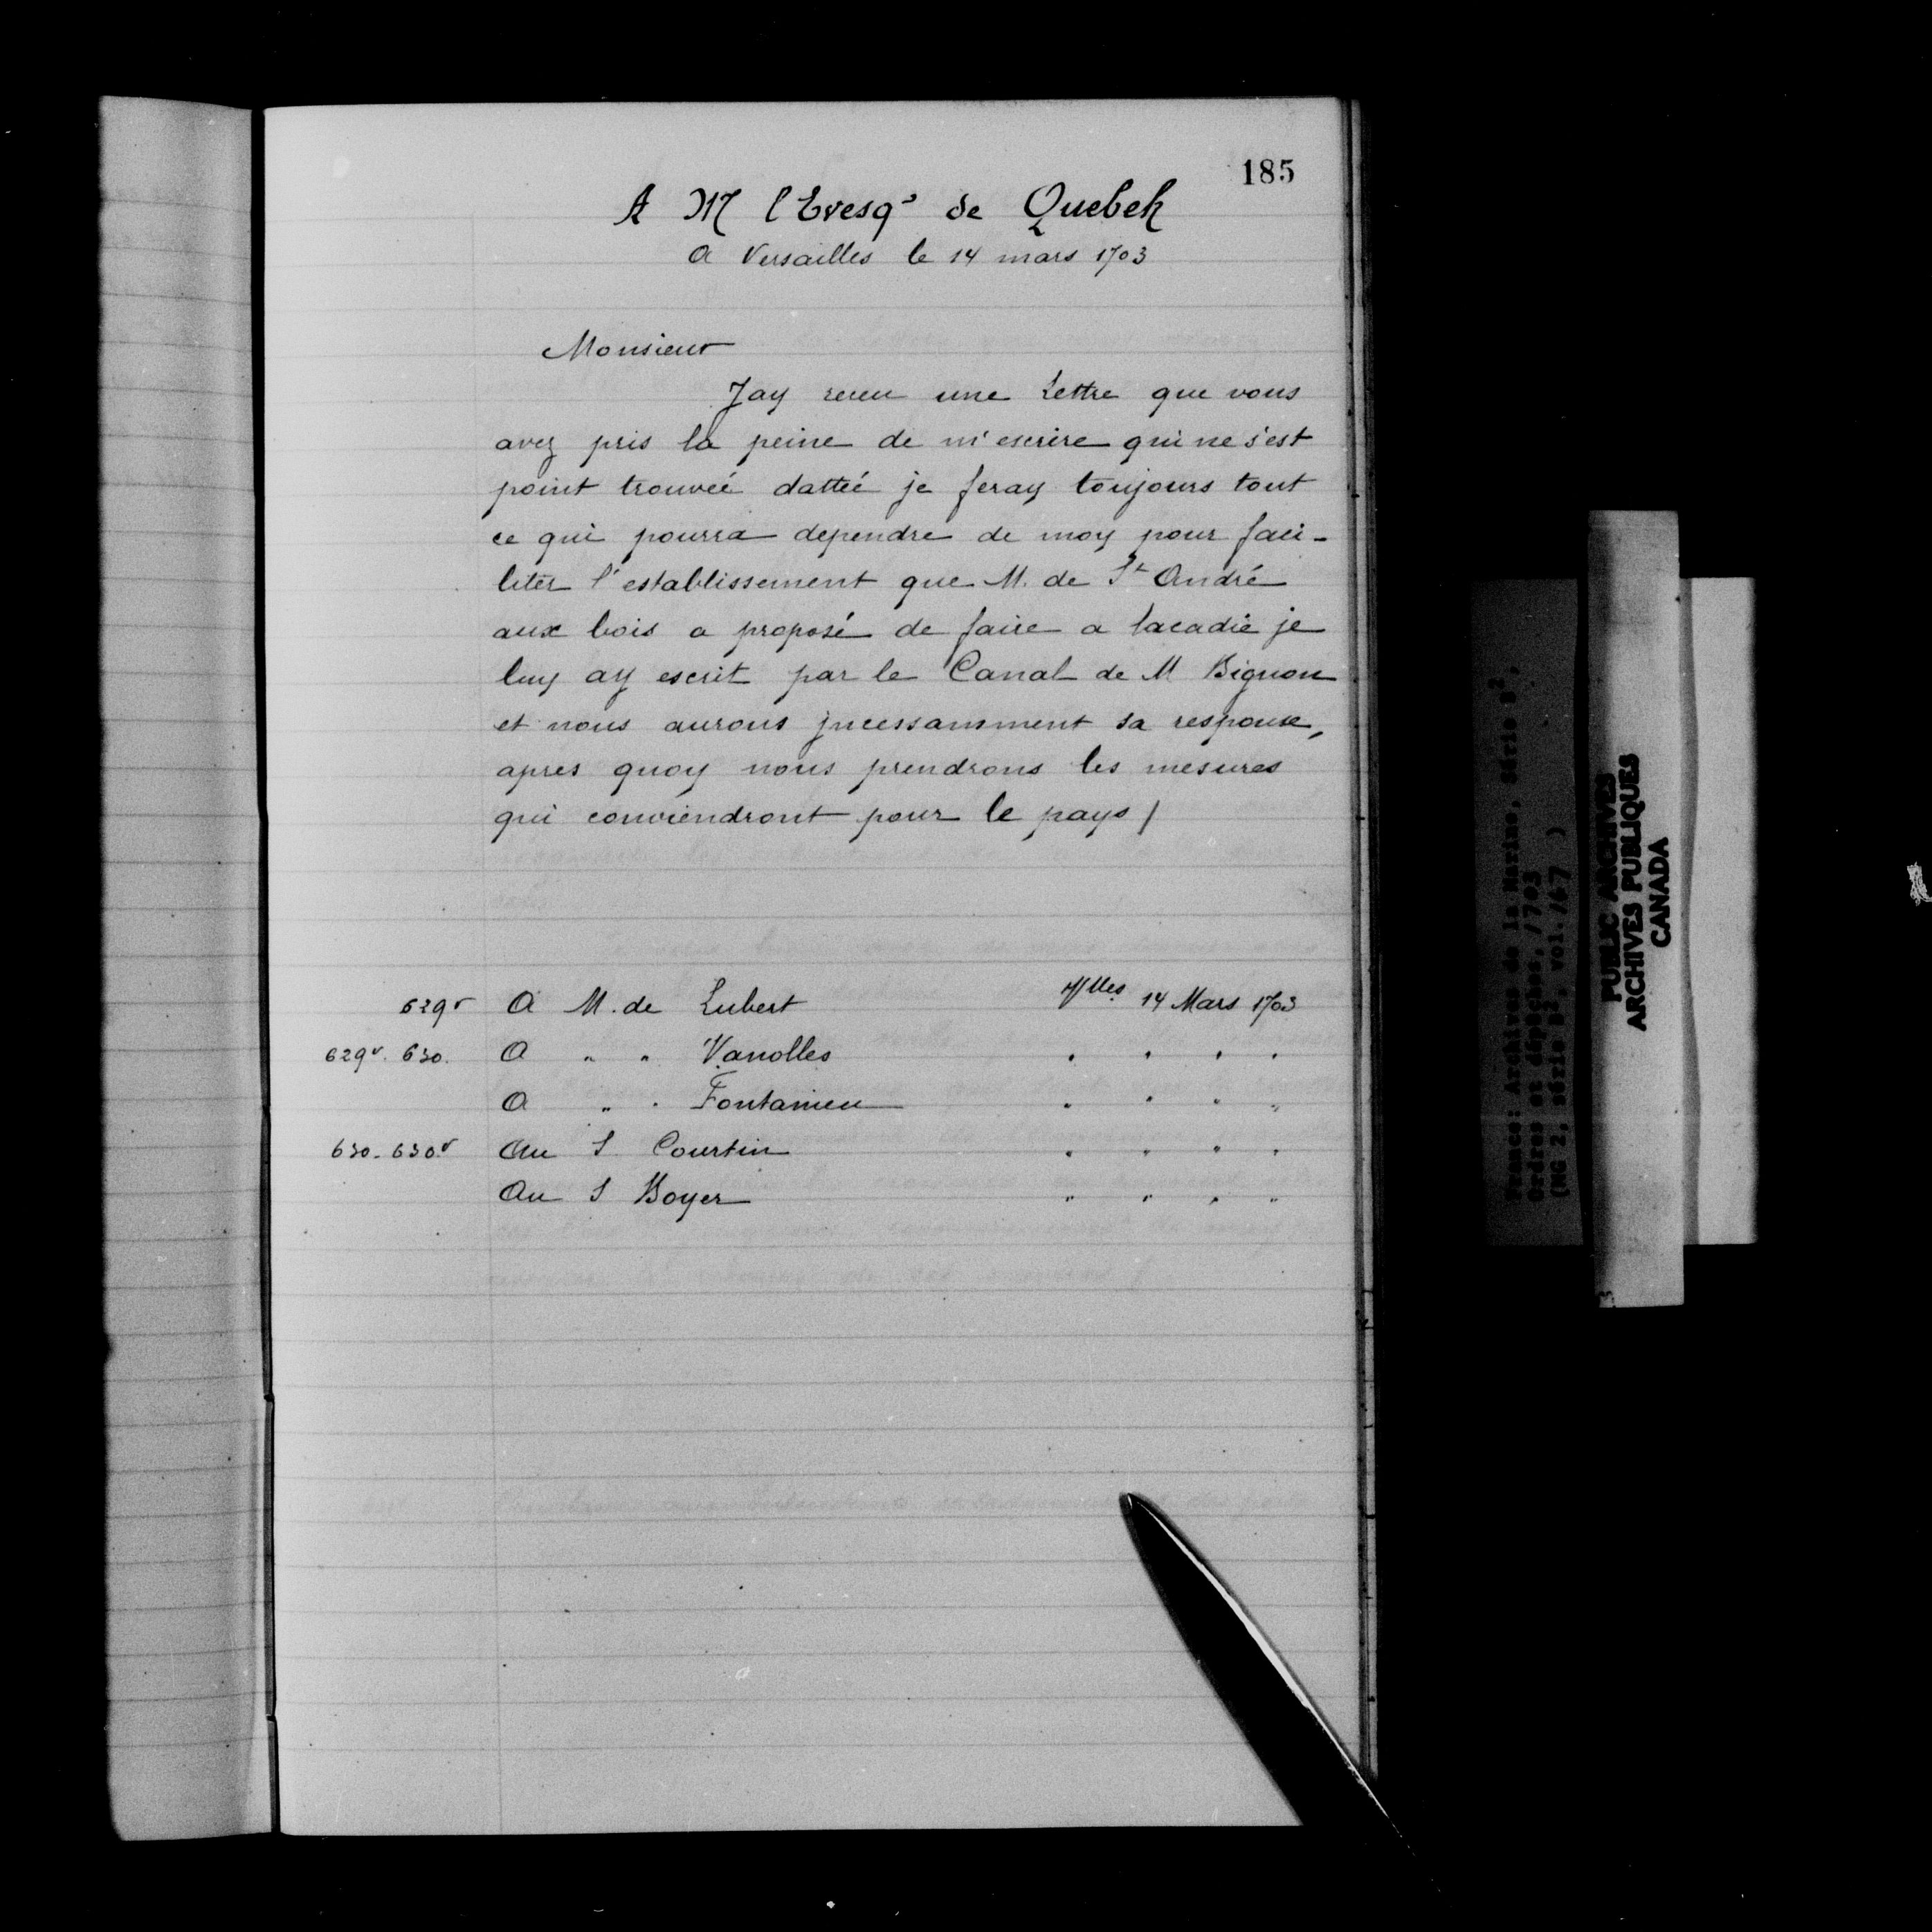 185
A M l'Evesq^e de Quebek
A Versailles le 14 mars 1703
Monsieur
Jay receu une Lettre que vous
avez pris la peine de m'escrire qui ne s'est
point trouveé datteé je feray toujours tout
ce qui pourra dependre de moy pour faci-
liter l'establissement que M. de S^t André
aux bois a proposé de faire a lacadie je
luy ay escrit par le Canal de M Bignon
et nous aurons jncessamment sa response,
apres quoy nous prendrons les mesures
qui conviendront pour le pays /
629v A M. de Lubert Vlles 14 Mars 1703
629v. 630. A " " Vanolles " " " "
A " " Fontanieu " " " "
630-630v Au S Courtin " " " "
Au S Boyer " " " "
France: Archives de la Marine, Série B2,
Ordres et dépêches, 1703
(MG 2, série B2, vol. 167 )
PUBLIC ARCHIVES
ARCHIVES PUBLIQUES
CANADA